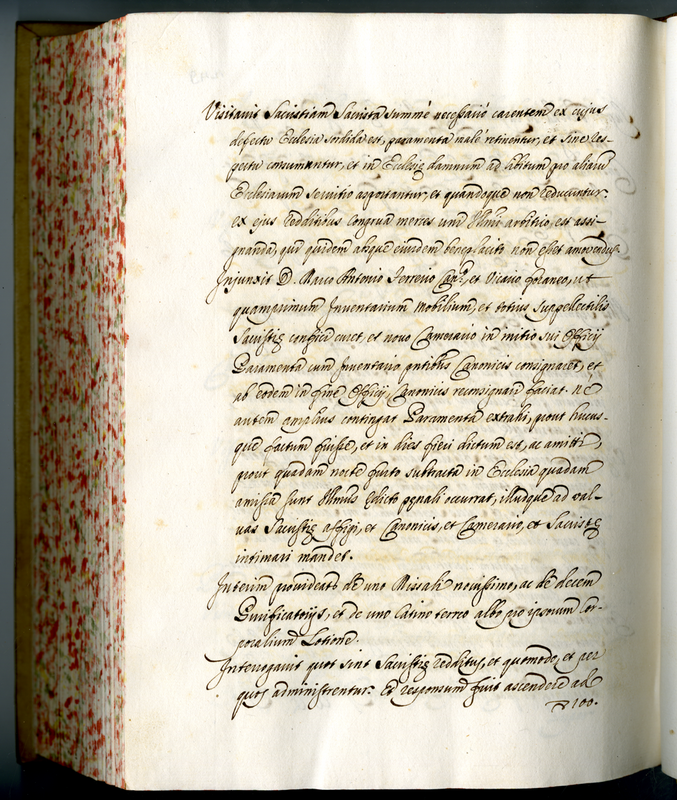 Visitavit Sacristiam Sacrista summè necessariò carentem ex cujus
defectu Ecclesia sordida est, paramenta malè retinentur, et sine res-
pectu consumuntur, et in Ecclesię damnum ad libitum pro aliarũ
Ecclesiarum servitio asportantur, et quandoque non reducuntur.
ex ejus redditibus congrua merces uni Illmi arbitrio, est assi-
gnanda, qui quidem absque eiusdem beneplacito non esset amovendus.
Injunxit D. Marco Antonio Ferrerio Canco, et Vicario foraneo, ut
quamprimum Inventarium mobilium, et totius suppellectilis
Sacristię confici curet, et novo Camerario in initio sui Officij
Paramenta cum Inventario pntibus Canonicis consignaret, et
ab eodem in fine Officij, Canonicis reconsignari faciat. ne
autem amplius contingat Paramenta extrahi, prout hucus-
que factum fuisse, et in dies fieri dictum est, ac amitti,
prout quadam nocte furto subtracta in Ecclesia quadam
amissa sunt Illmus Edicto pęnali occurrat, illudque ad val-
vas Sacristię affigi, et Canonicis, et Camerario, et Sacristę
intimari mandet.
Interim provideatr de uno Missali novissimo, ac de decem
Purificatorijs, et de uno catino terreo albo pro ipsorum Cor-
poralium Lotione.
Interrogavit quot sint Sacristię redditus, et quomodo, et per
quos administrentur. Et responsum fuit ascendere ad
100.